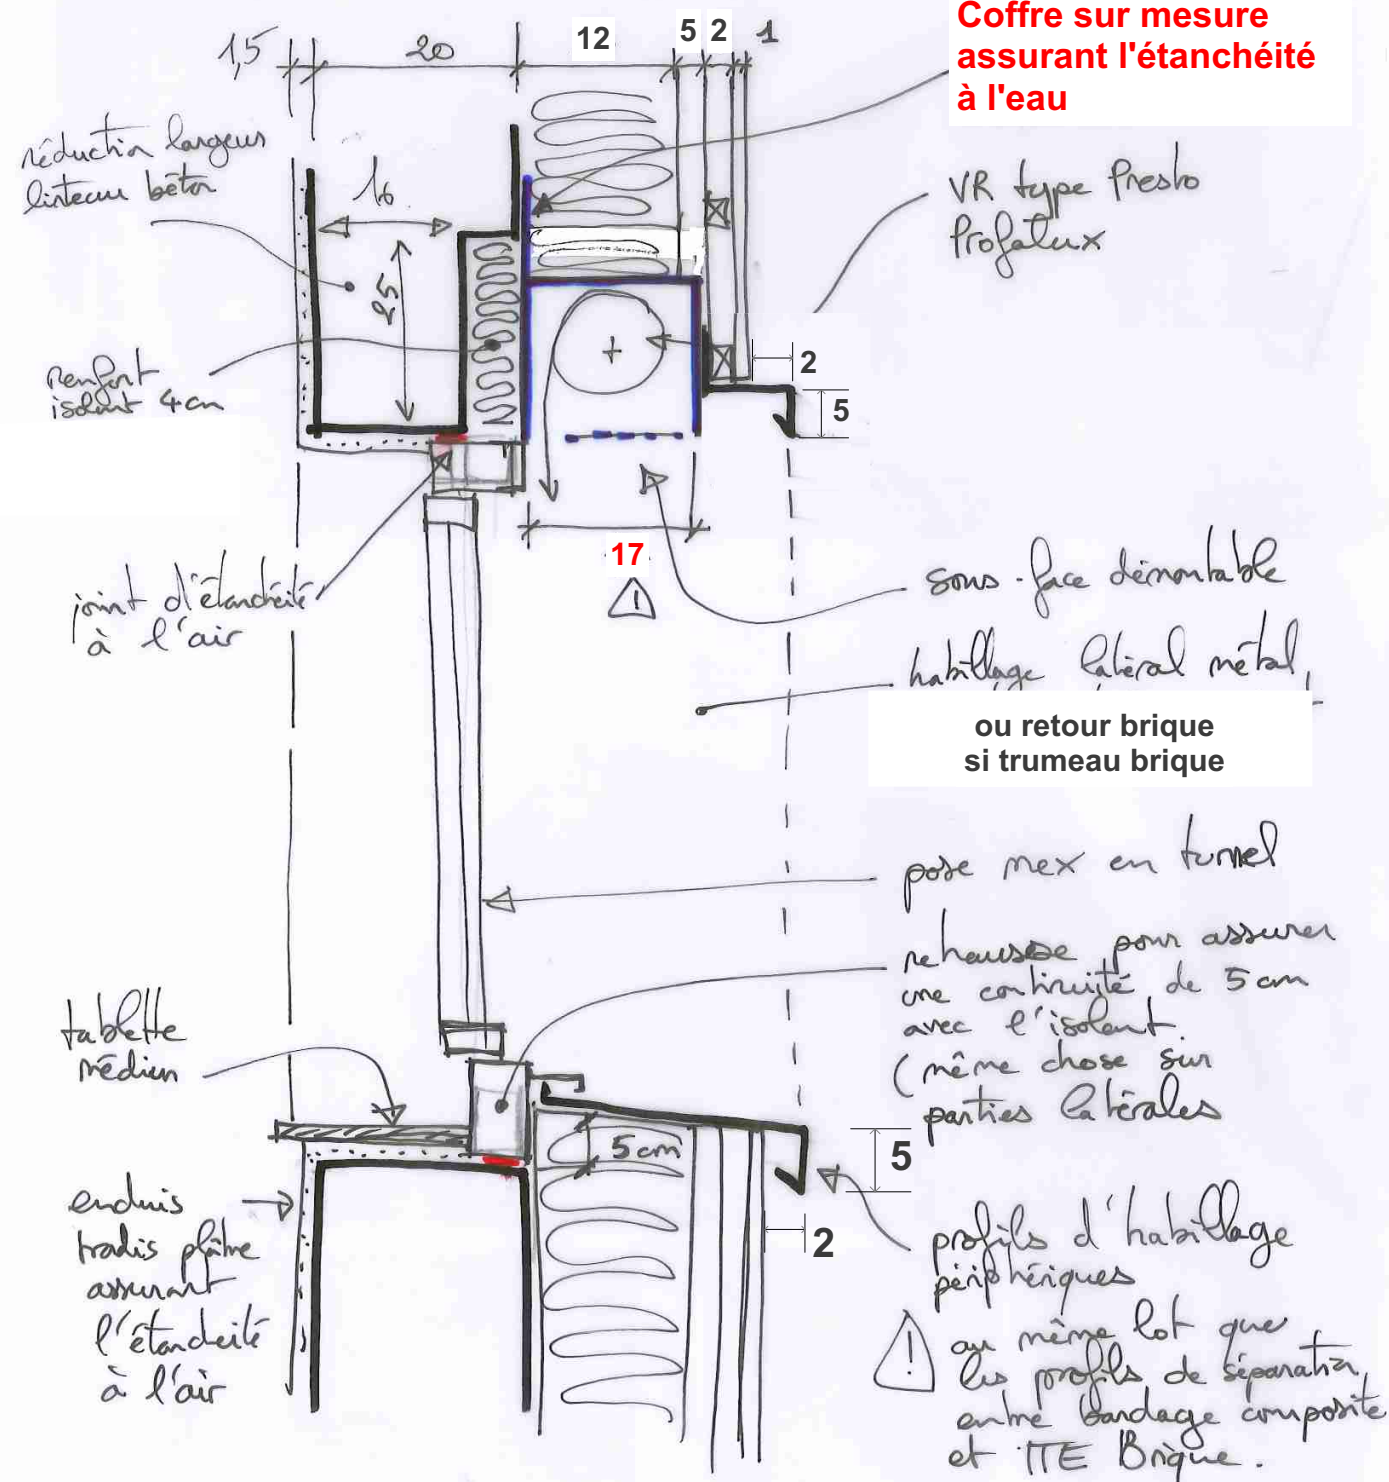 Coffre sur mesure
assurant l'étanchéité
à l'eau
1,5
20
12
5
2
1
réduction largeur
linteau béton
16
25
VR type Presto
Profalux
renfort
isolant 4 cm
2
5
17
joint d'étanchéité
à l'air
sous-face démontable
habillage latéral métal,
ou retour brique
si trumeau brique
pose mex en tunnel
rehausse pour assurer
une continuité de 5 cm
avec l'isolant.
(même chose sur
parties latérales
tablette
médium
5 cm
5
2
enduis
tradis plâtre
assurant
l'étanchéité
à l'air
profils d'habillage
périphériques
! au même lot que
les profils de séparation
entre bardage composite
et ITE Brique.